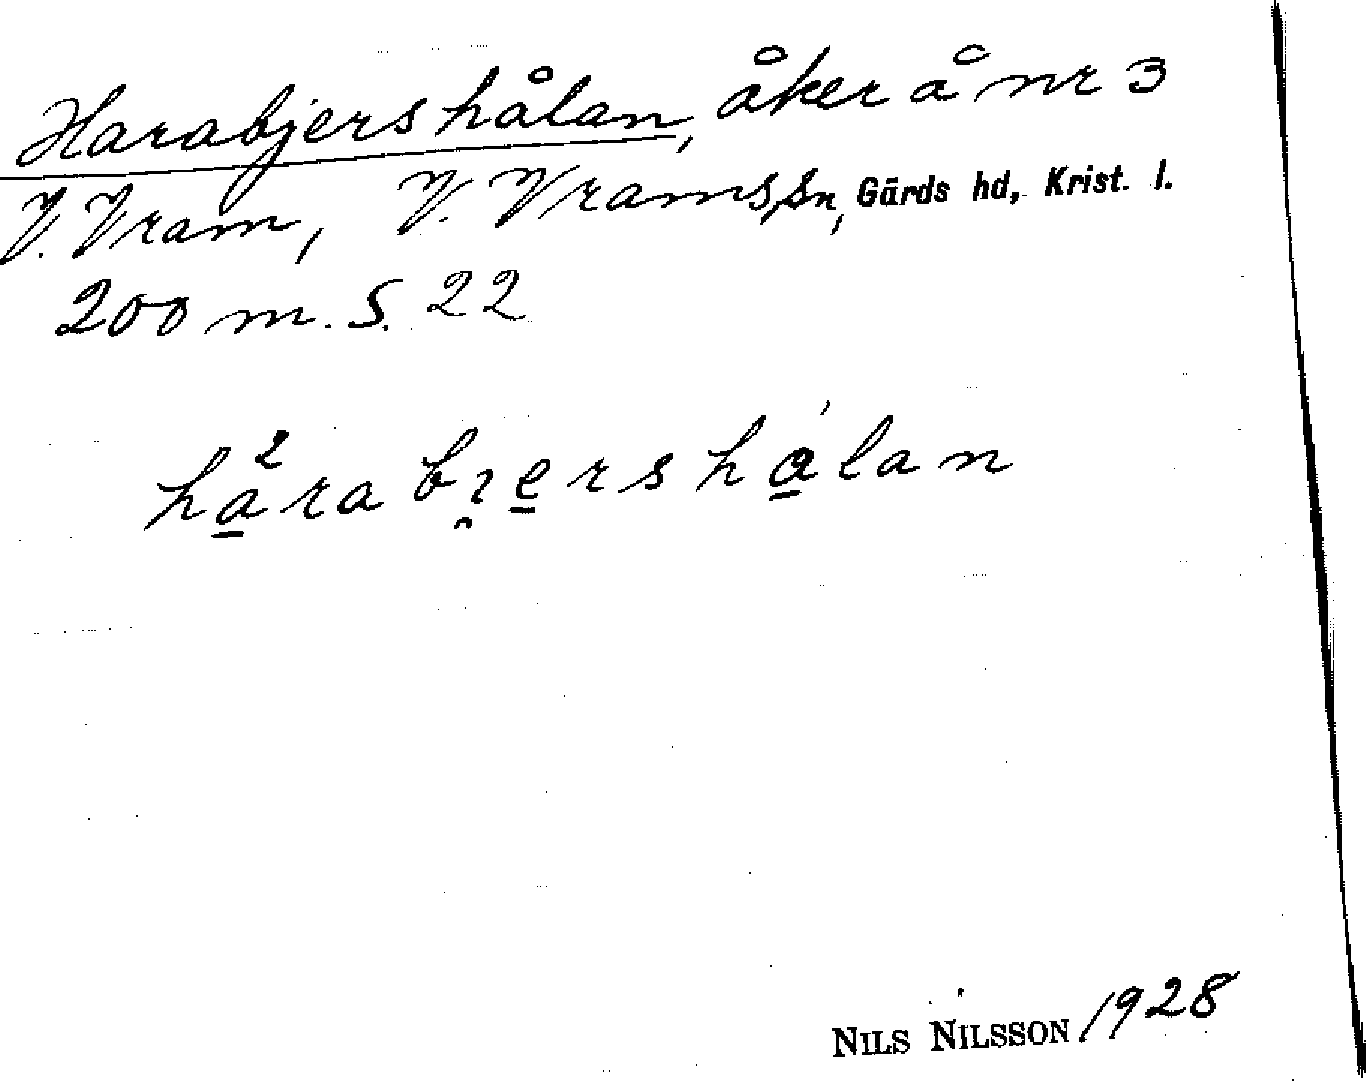 Harabjershålan, åker å nr 3
V. Vram, V. Vrams sn, Gärds hd, Krist. l.
200 m. S. 22
ha̲²rabi̯e̲rshá̲lan
NILS NILSSON 1928